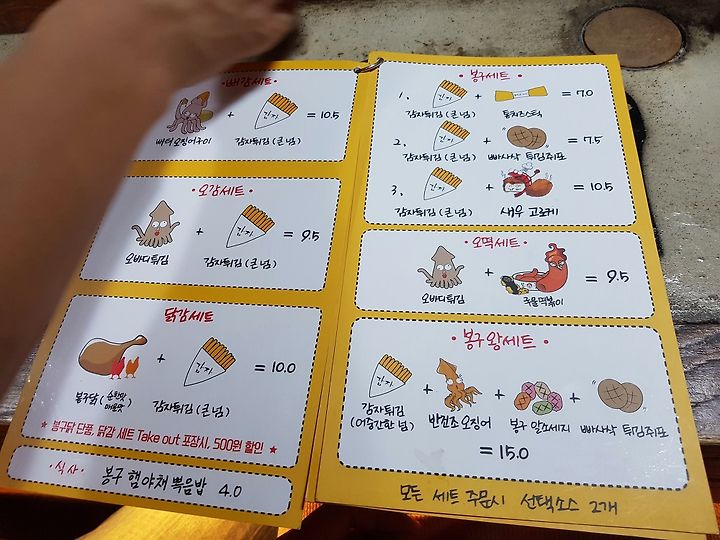 빠감세트
긴감
+
= 10.5
버터오징어구이
감자튀김 (큰 넘)
• 오감세트 •
긴자
+
= 9.5
오바디튀김
감자튀김 (큰 넘)
닭감세트
긴자
+
= 10.0
봉구닭 (순한맛 매운맛)
감자튀김 (큰 넘)
★ 봉구닭 단품, 닭감 세트 Take out 포장시, 500원 할인 ★
• 식사 • 봉구 햄야채 볶음밥 4.0
• 봉구세트 •
1. 긴자 + = 7.0
감자튀김 (큰 넘) 통치즈스틱
2. 긴자 + = 7.5
감자튀김 (큰 넘) 빠사삭 튀김쥐포
3. 긴자 + = 10.5
감자튀김 (큰 넘) 새우 고로케
• 오떡세트 •
+ = 9.5
오바디튀김 국물떡볶이
• 봉구 왕세트 •
긴자 + + +
감자튀김 (어중간한 넘) 반건조 오징어 봉구 말끼세지 빠사삭 튀김쥐포
= 15.0
모든 세트 주문시 선택소스 2개